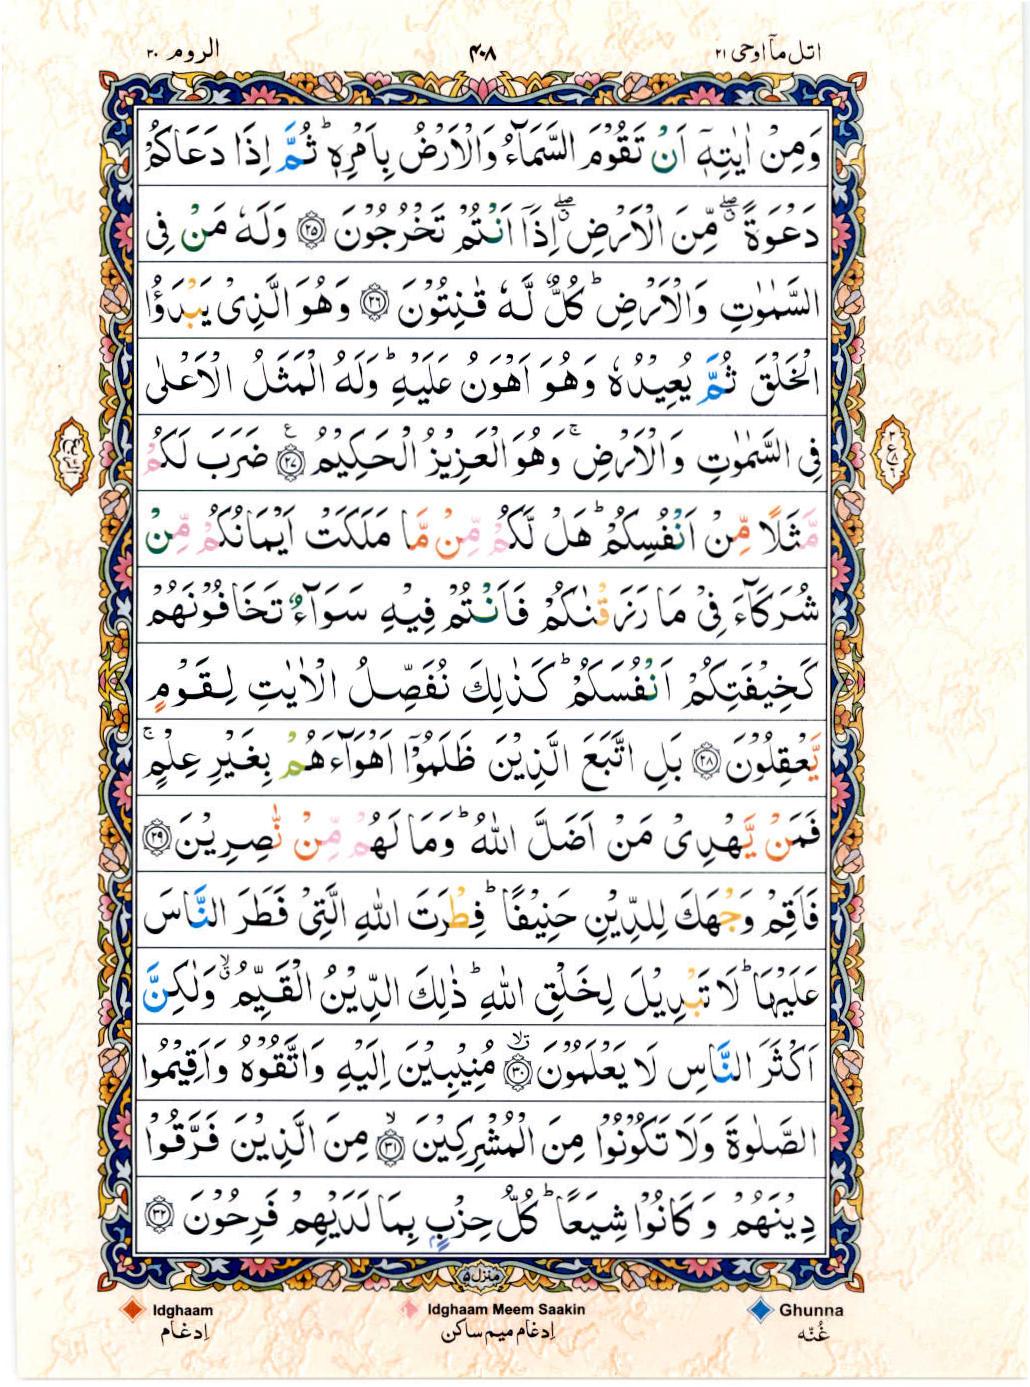 اتل مآ اوحی ۲۱
۴۰۸
الروم ۳۰
وَمِنْ اٰیٰتِهٖۤ اَنْ تَقُوْمَ السَّمَآءُ وَالْاَرْضُ بِاَمْرِهٖ ؕ ثُمَّ اِذَا دَعَاكُمْ
دَعْوَةً ۖۗ مِّنَ الْاَرْضِ ۖۗ اِذَاۤ اَنْتُمْ تَخْرُجُوْنَ ﴿۲۵﴾ وَلَهٗ مَنْ فِی
السَّمٰوٰتِ وَالْاَرْضِ ؕ كُلٌّ لَّهٗ قٰنِتُوْنَ ﴿۲۶﴾ وَهُوَ الَّذِیْ یَبْدَؤُا
الْخَلْقَ ثُمَّ یُعِیْدُهٗ وَهُوَ اَهْوَنُ عَلَیْهِ ؕ وَلَهُ الْمَثَلُ الْاَعْلٰی
فِی السَّمٰوٰتِ وَالْاَرْضِ ۚ وَهُوَ الْعَزِیْزُ الْحَكِیْمُ ﴿۲۷﴾ ع ضَرَبَ لَكُمْ
مَّثَلًا مِّنْ اَنْفُسِكُمْ ؕ هَلْ لَّكُمْ مِّنْ مَّا مَلَكَتْ اَیْمَانُكُمْ مِّنْ
شُرَكَآءَ فِیْ مَا رَزَقْنٰكُمْ فَاَنْتُمْ فِیْهِ سَوَآءٌ تَخَافُوْنَهُمْ
كَخِیْفَتِكُمْ اَنْفُسَكُمْ ؕ كَذٰلِكَ نُفَصِّلُ الْاٰیٰتِ لِقَوْمٍ
یَّعْقِلُوْنَ ﴿۲۸﴾ بَلِ اتَّبَعَ الَّذِیْنَ ظَلَمُوْۤا اَهْوَآءَهُمْ بِغَیْرِ عِلْمٍ ۚ
فَمَنْ یَّهْدِیْ مَنْ اَضَلَّ اللّٰهُ ؕ وَمَا لَهُمْ مِّنْ نّٰصِرِیْنَ ﴿۲۹﴾
فَاَقِمْ وَجْهَكَ لِلدِّیْنِ حَنِیْفًا ؕ فِطْرَتَ اللّٰهِ الَّتِیْ فَطَرَ النَّاسَ
عَلَیْهَا ؕ لَا تَبْدِیْلَ لِخَلْقِ اللّٰهِ ؕ ذٰلِكَ الدِّیْنُ الْقَیِّمُ ۙۗ وَلٰكِنَّ
اَكْثَرَ النَّاسِ لَا یَعْلَمُوْنَ ﴿۳۰﴾ مُنِیْبِیْنَ اِلَیْهِ وَاتَّقُوْهُ وَاَقِیْمُوا
الصَّلٰوةَ وَلَا تَكُوْنُوْا مِنَ الْمُشْرِكِیْنَ ﴿۳۱﴾ۙ مِنَ الَّذِیْنَ فَرَّقُوْا
دِیْنَهُمْ وَكَانُوْا شِیَعًا ؕ كُلُّ حِزْبٍۭ بِمَا لَدَیْهِمْ فَرِحُوْنَ ﴿۳۲﴾
منزل ۵
Idghaam
اِدغام
Idghaam Meem Saakin
اِدغام میم ساکن
Ghunna
غُنّه